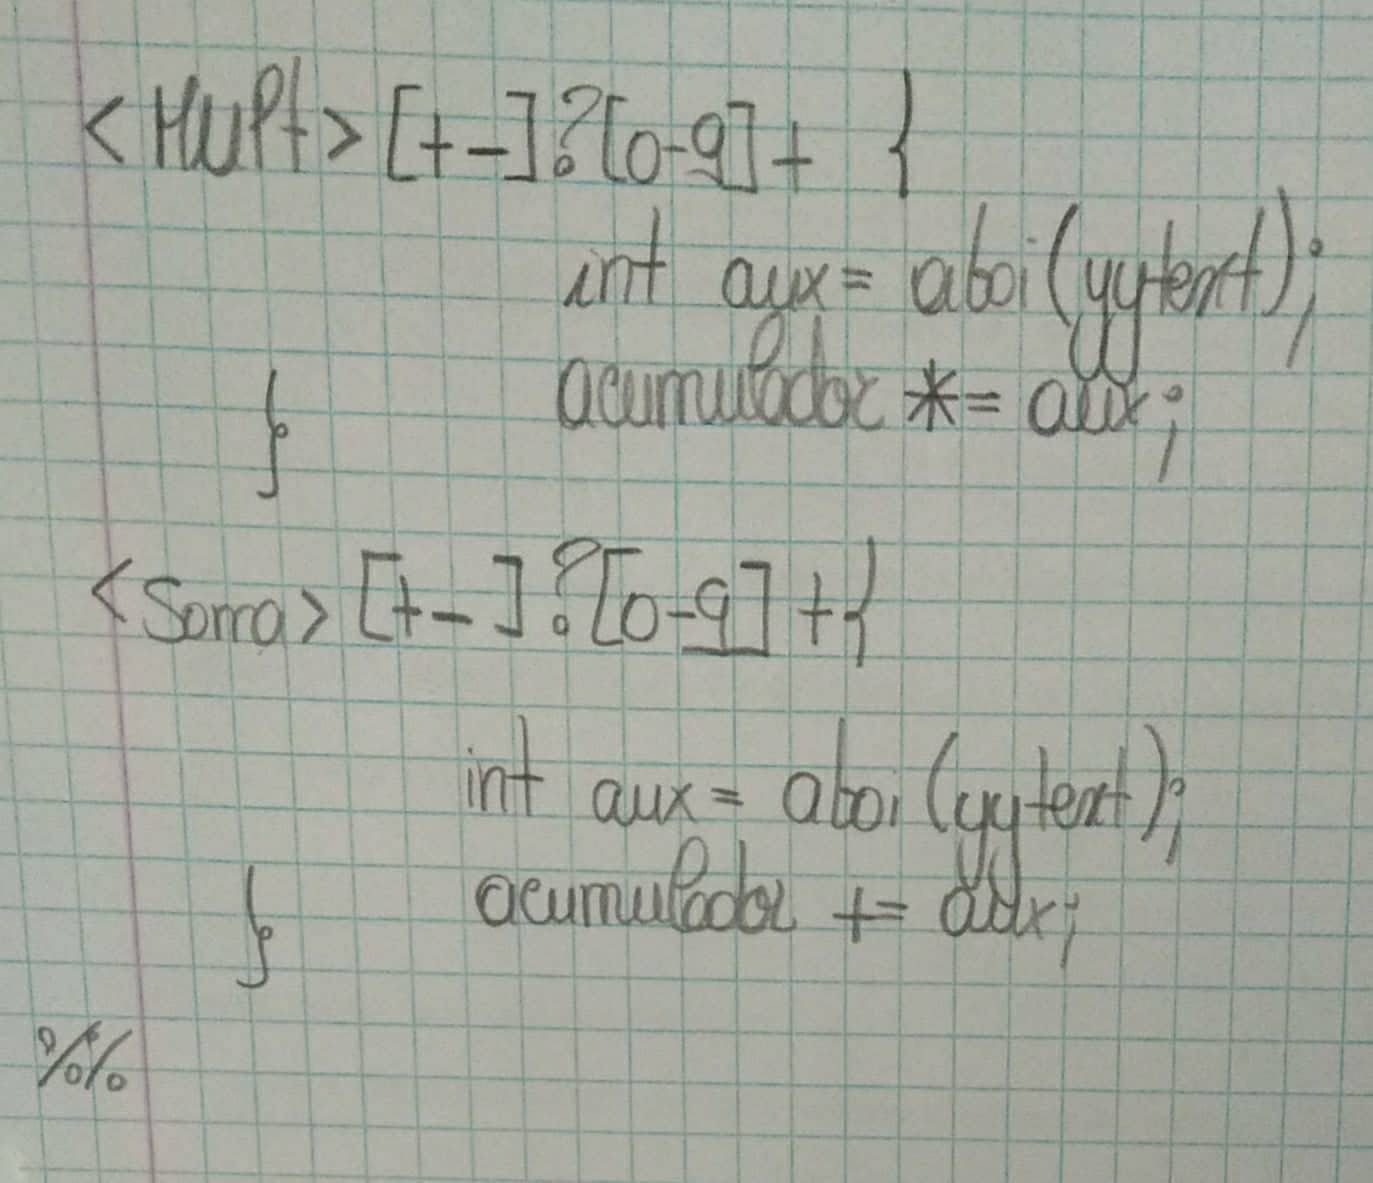 <Mult> [+-]?[0-9]+ {
int aux = atoi(yytext);
acumulador *= aux;
}
<Soma> [+-]?[0-9]+{
int aux = atoi(yytext);
acumulador += aux;
}
%%